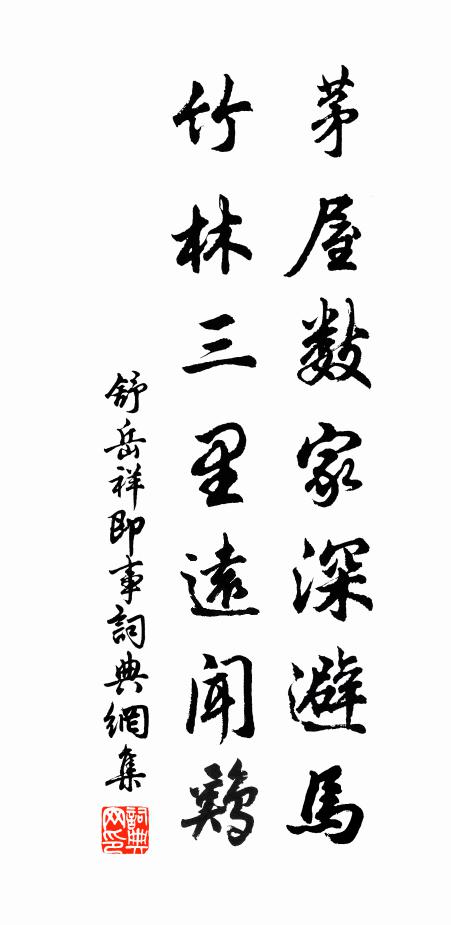 茅屋数家深避馬
竹林三里遠聞鷄
舒岳祥即事詞典網集
詞典网印